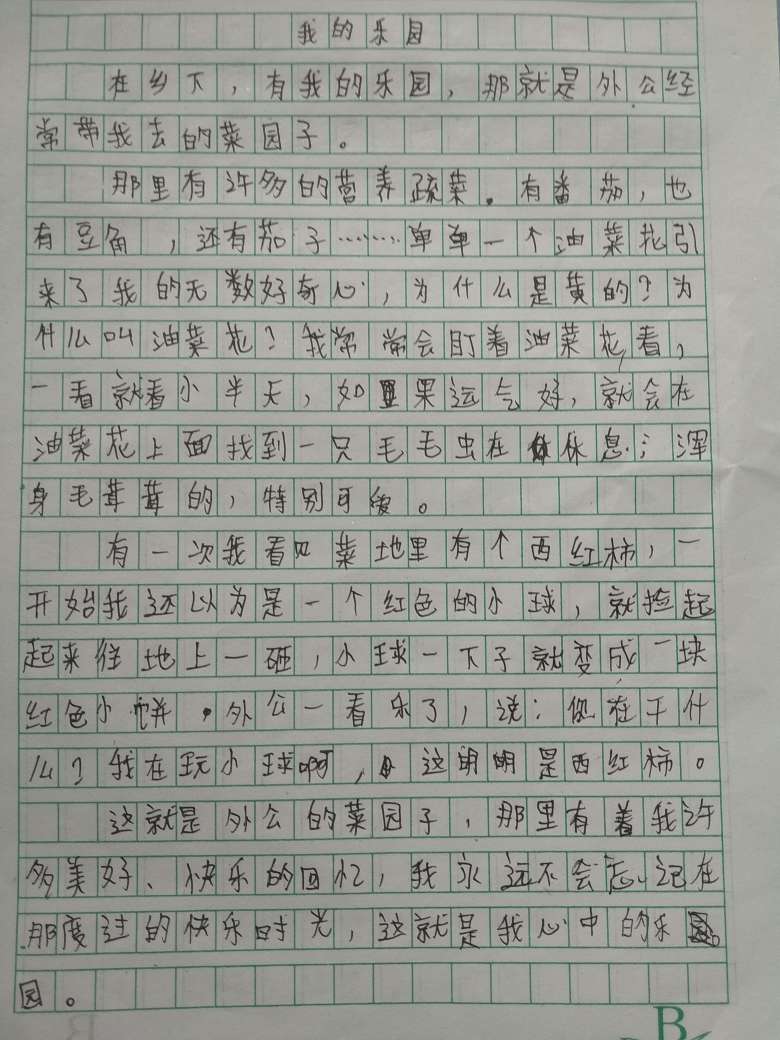 我的乐园
在乡下，有我的乐园，那就是外公经
常带我去的菜园子。
那里有许多的营养疏菜。有番茄，也
有豆角，还有茄子……单单一个油菜花引
来了我的无数好奇心，为什么是黄的？为
什么叫油菜花？我常常会盯着油菜花看，
一看就看小半天，如果运气好，就会在
油菜花上面找到一只毛毛虫在休息；浑
身毛茸茸的，特别可爱。
有一次我看见菜地里有个西红柿，一
开始我还以为是一个红色的小球，就捡起
起来往地上一砸，小球一下子就变成一块
红色小饼。外公一看乐了，说：你在干什
么？我在玩小球啊，这明明是西红柿。
这就是外公的菜园子，那里有着我许
多美好、快乐的回忆，我永远不会忘记在
那度过的快乐时光，这就是我心中的乐
园。
B